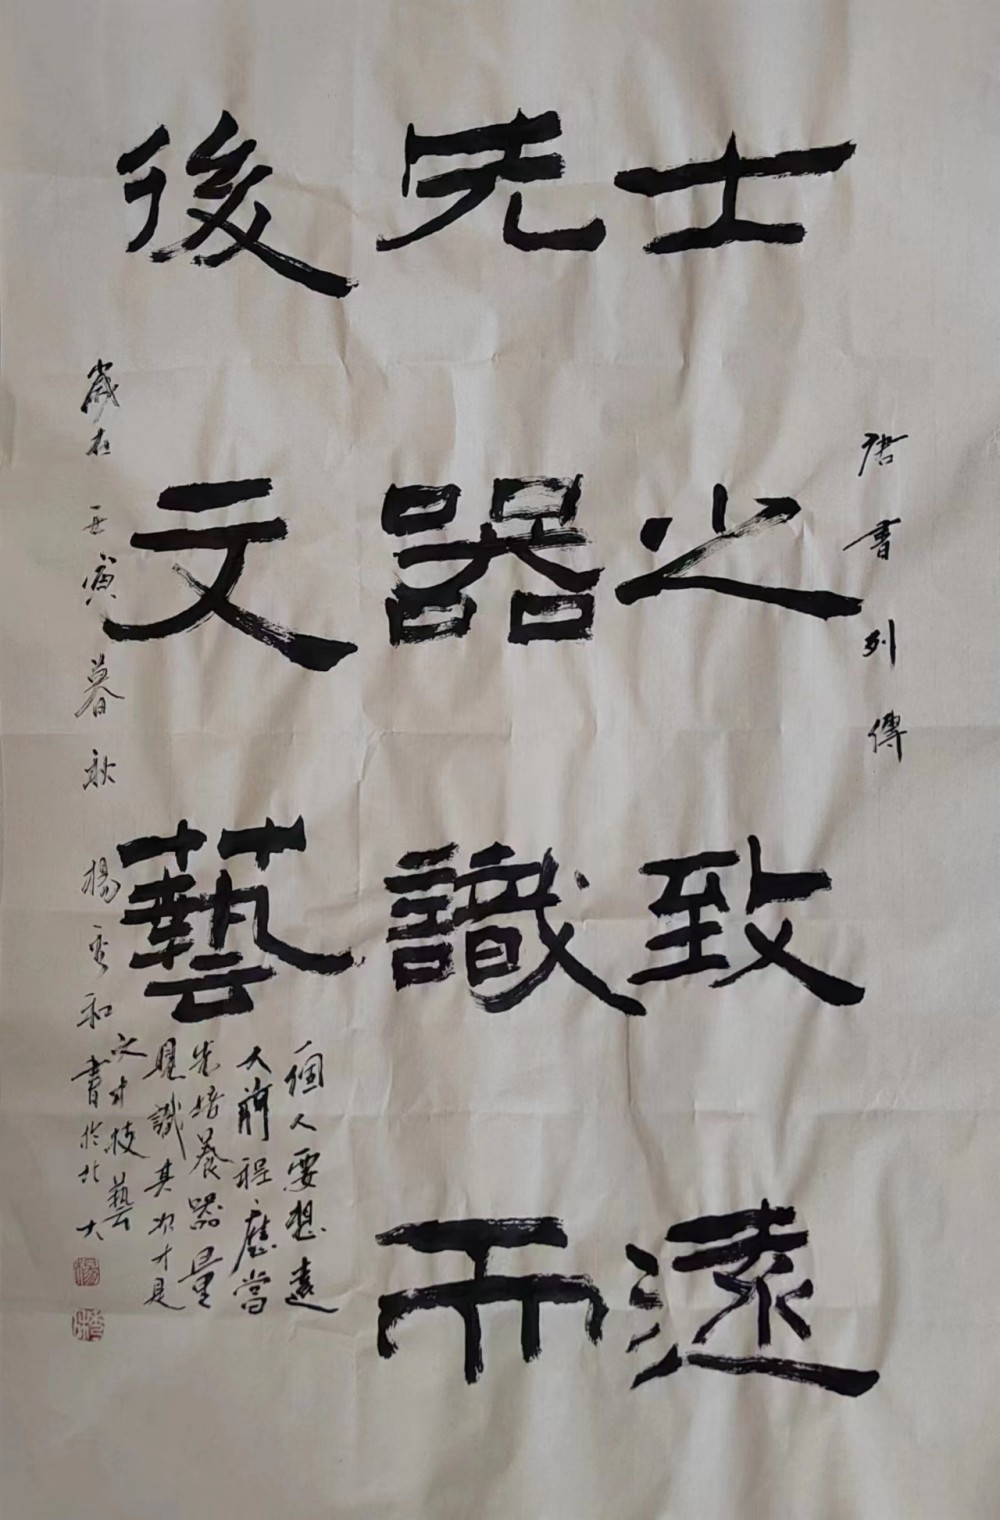 唐書列傳
士之致遠
先器識而
後文藝
一個人要想遠
大前程應當
先培養器量
見識其次才是
文才技藝
歲在壬寅暮秋楊秀和書於北大